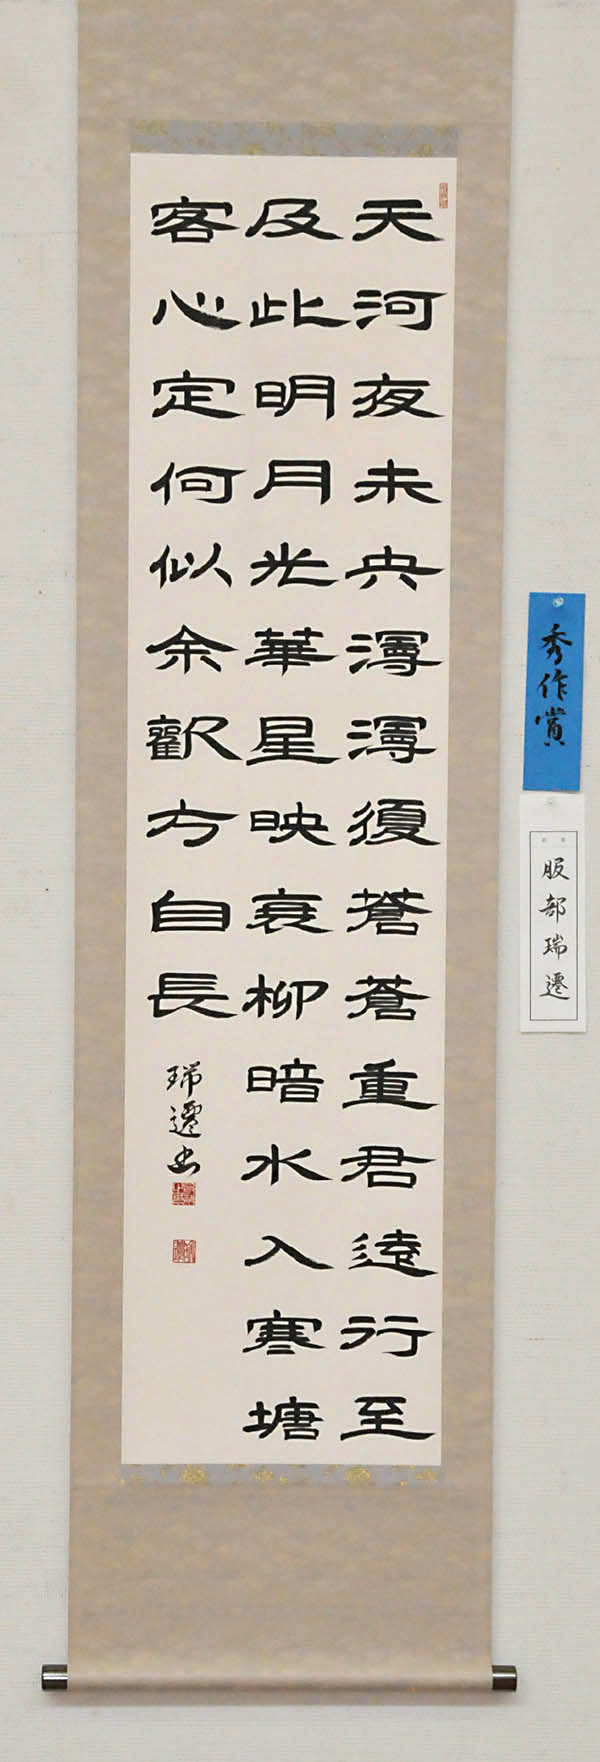 天河夜未央漙漙復蒼蒼重君遠行至
及此明月光華星映衰柳暗水入寒塘
客心定何似余歡方自長
瑞遷書
秀作賞
服部瑞遷